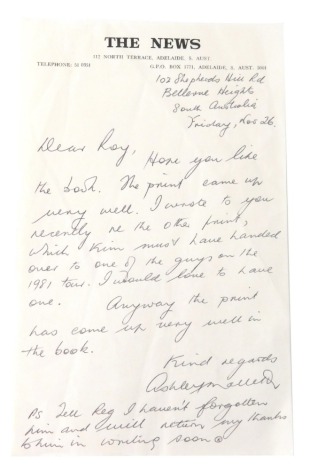 THE NEWS
112 NORTH TERRACE, ADELAIDE, S. AUST.
TELEPHONE: 51 0351 G.P.O. BOX 1771, ADELAIDE, S. AUST. 5001
102 Shepherds Hill Rd
Bellevue Heights
South Australia
Friday, Nov 26.
Dear Roy, Hope you like
the book. The print came up
very well. I wrote to you
recently re the other print,
which Kim must have handed
over to one of the guys on the
1981 tour. I would love to have
one. Anyway the print
has come up very well in
the book.
Kind regards
Ashley Mallett
PS Tell Reg I haven't forgotten
him and will return my thanks
to him in writing soon